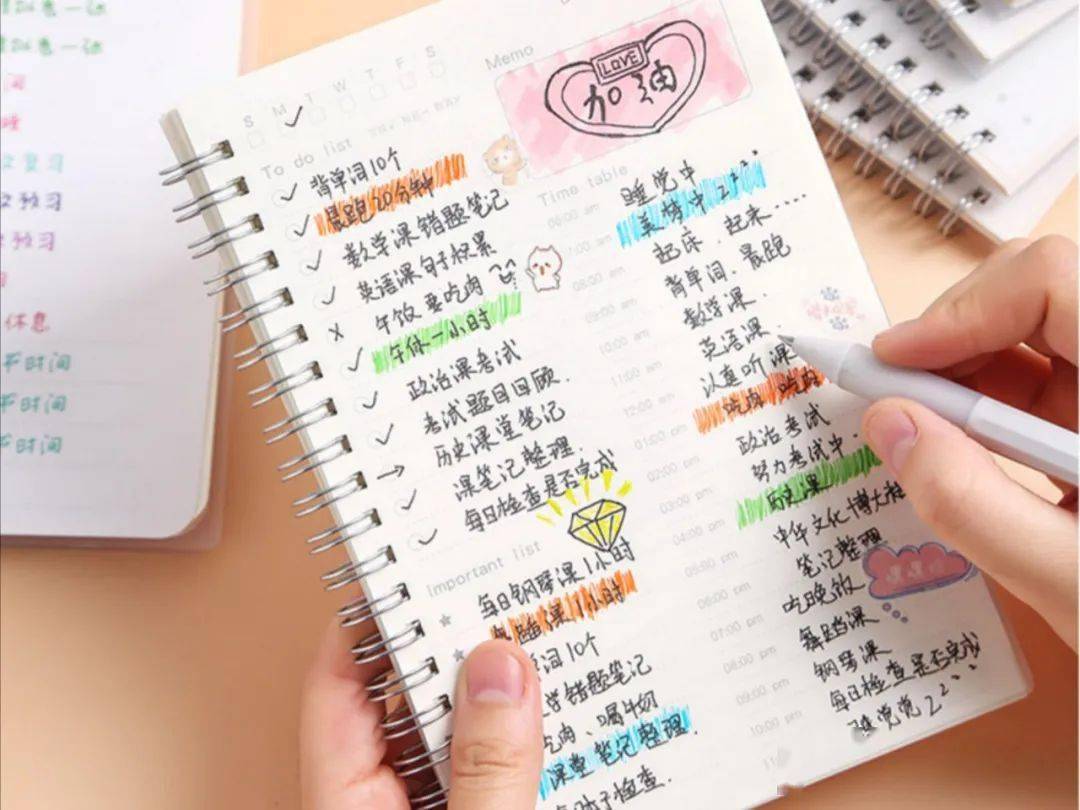 卷一张
间
复习
预习
预习
休息
午时间
S M T W T F S
To do list
背单词10个
晨跑20分钟
数学课错题笔记
英语课句子积累
午饭要吃肉
午休一小时
政治课考试
考试题目回顾.
历史课堂笔记
课笔记整理.
每日检查是否完成
Important list
每日钢琴课1小时
舞蹈课1小时
词10个
学错题笔记
吃肉、喝牛奶
课堂笔记整理.
检查.
Memo
LOVE
加油
Time table
06:00 am
7:00 am
08:00 am
09:00 am
10:00 am
11:00 am
12:00 am
01:00 pm
02:00 pm
03:00 pm
04:00 pm
05:00 pm
06:00 pm
07:00 pm
08:00 pm
09:00 pm
10:00 pm
睡觉中
美梦中
起床.起来.....
背单词.晨跑
数学课.
英语课.
认真听课
吃肉 吃肉
政治考试
努力考试中..
历史课
中华文化博大精
笔记整理
吃晚饭
舞蹈课
钢琴课
每日检查是否完成
睡觉觉